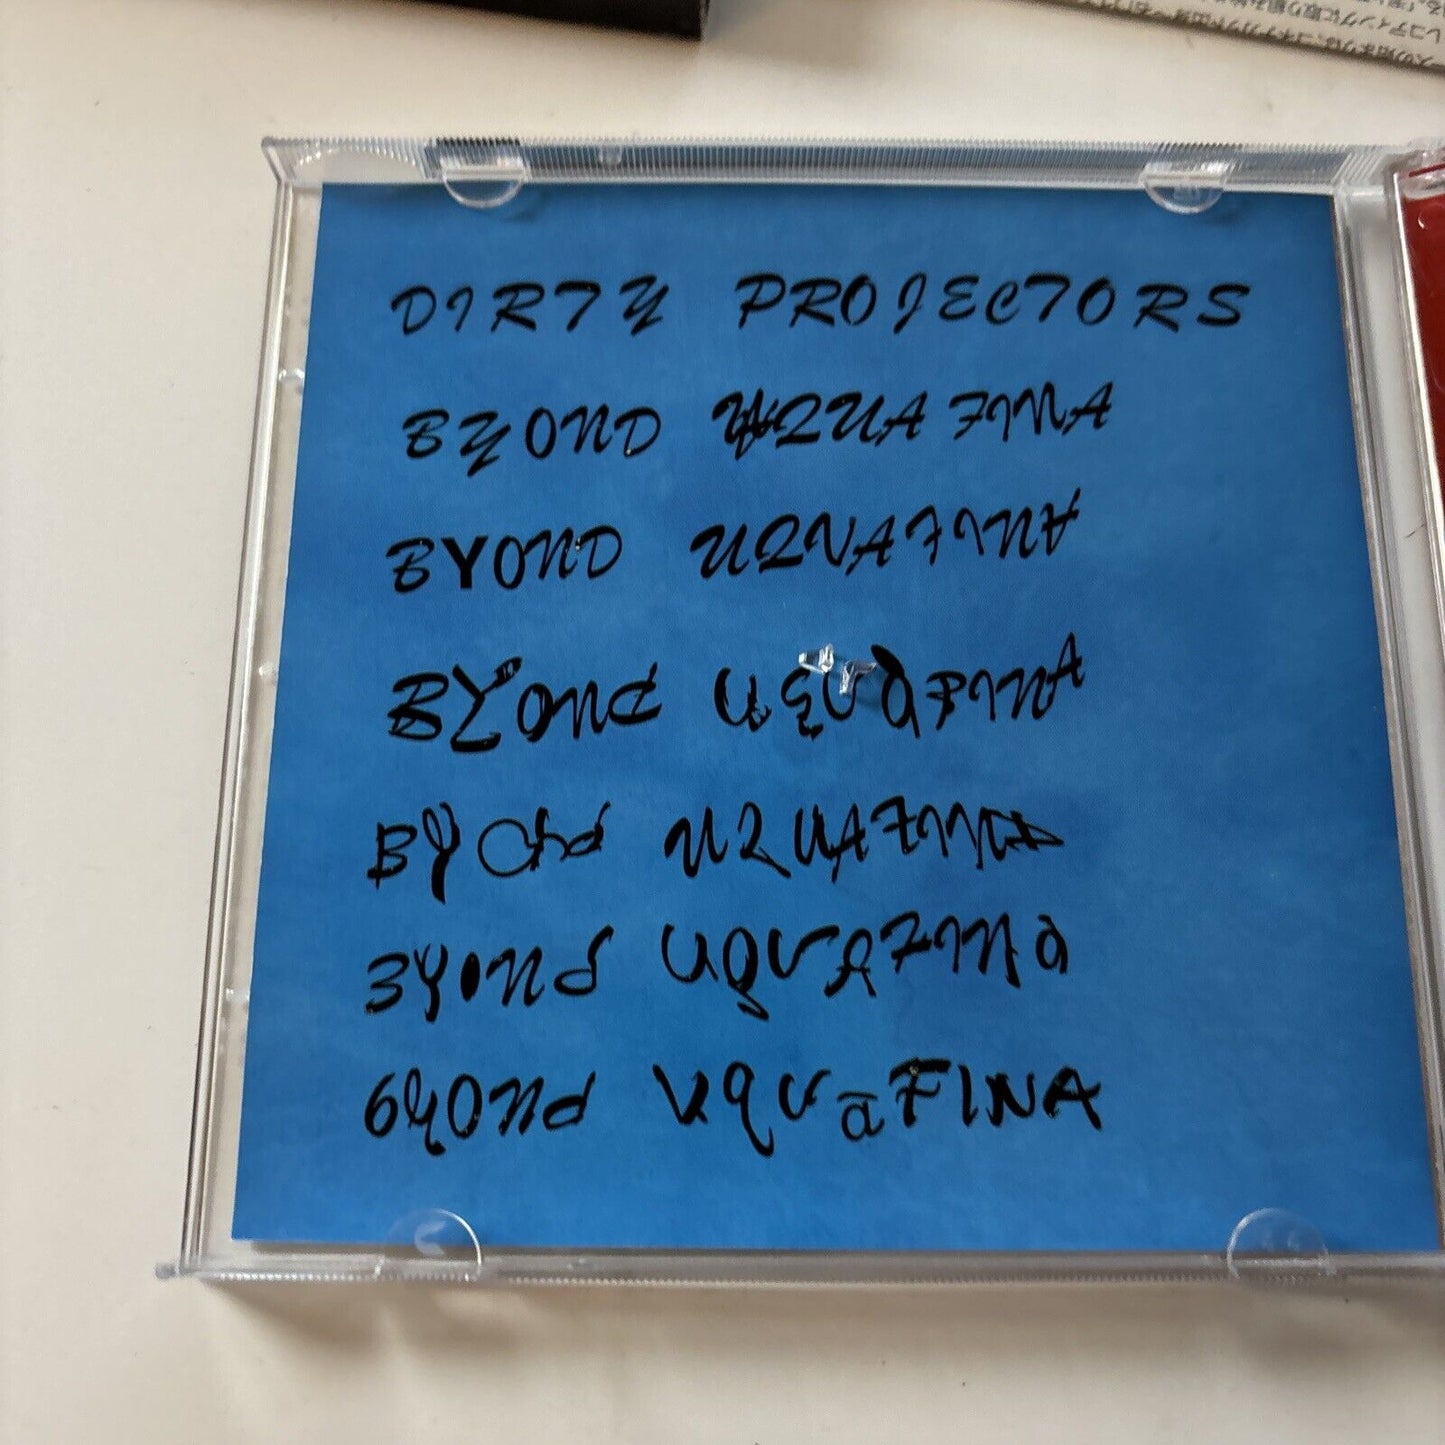 DIRTY PROJECTORS
BYOND AQUAFINA
BYOND UQUAFINA
BYOND UQUAFINA
BYOND UQUAFINA
BYOND UQUAFINA
BYOND UQUaFINA